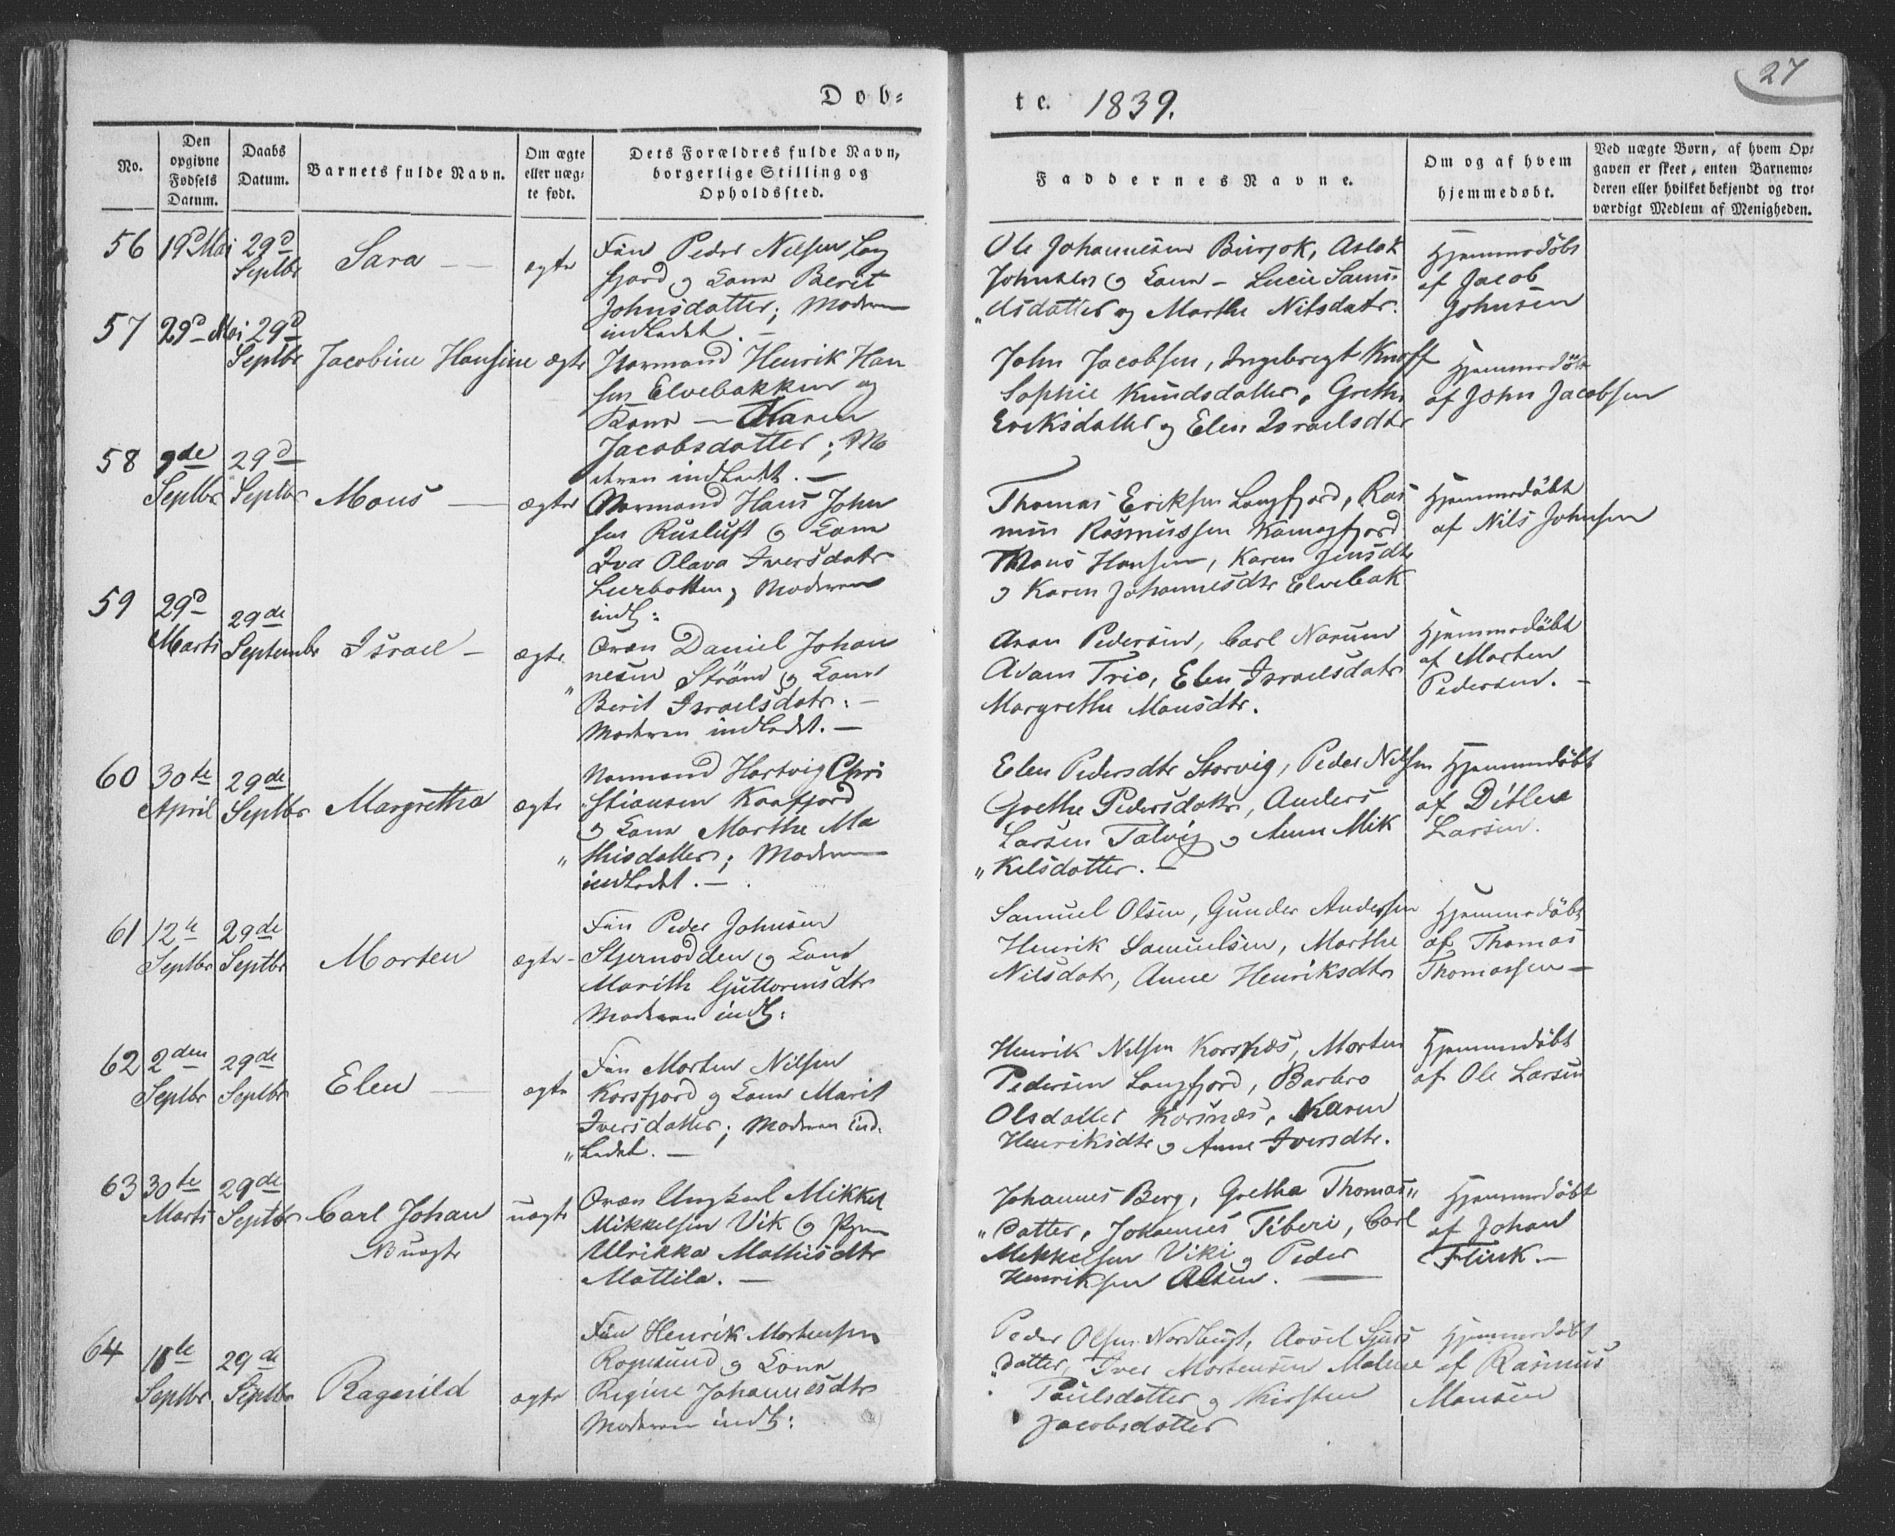 Dob-
te. 1839.
27
No.
Den opgivne Fødsels Datum.
Daabs Datum.
Barnets fulde Navn.
Om ægte eller uægte født.
Dets Forældres fulde Navn,
borgerlige Stilling og
Opholdssted.
Faddernes Navne.
Om og af hvem
hjemmedøbt.
Ved uægte Børn, af hvem Op-
gaven er skeet, enten Barnemo-
deren eller hvilket bekjendt og tro-
værdigt Medlem af Menigheden.
56 19d Mai 29d Septbr Sara — ægte
Fin Peder Nelsen Lang
fjord og Kone Berit
Johnsdatter; Moderen
indledet. —
Ole Johannesen Bursok, Aslak
Johnsen og Kone - Lucie Samu-
"elsdatter og Marthe Nilsdatr.
Hjemmedøbt
af Jacob
Johnsen
57 29d Mai 29d Septbr Jacobine Hansine ægte
Normand Henrik Han
sen Elvebakken og
Kone — Maren
Jacobsdatter; Mo
deren indledt. —
John Jacobsen, Ingebrigt Knoff
Sophie Knudsdatter, Grethe
Eriksdatter og Elen Israelsdtr
Hjemmedøbt
af John Jacobsen
58 9de Septbr 29d Septbr Mons — ægte
Normand Hans John
sen Rusluft og Kone
Eva Olava Iversdatr
Leerbotten, Moderen
indl:
Thomas Eriksen Langfjord, Ras
mus Rasmussen Kaagfjord
Mons Hansen, Karen Jensdtr
og Karen Johannesdtr Elvebak
Hjemmedøbt
af Nils Johnsen
59 29d Marts 29de Septembr Israel — ægte
Qvæn Daniel Johan
"nesen Strøm og Kone
Berit Israelsdatr. —
Moderen indledt. —
Aron Pedersen, Carl Narum
Adam Trio, Elen Israelsdatr
Margrethe Monsdtr.
Hjemmedøbt
af Morten
Pedersen. —
60 30te April 29de Septbr Margretha ægte
Normand Hartvig Chri
"stiansen Kaafjord
og Kone Marthe Ma
"thisdatter; Moderen
indledet. —
Elen Pedersdtr Storvig, Peder Nilsen
Grethe Pedersdatr, Anders
Larsen Talvig og Anne Mik
"kelsdatter. —
Hjemmedøbt
af Ditlev
Larsen.
61 12te Septbr 29de Septbr Morten ægte -
Fin Peder Johnsen
Stjernodden og Kone
Marith Guttormsdtr
Moderen indl:
Samuel Olsen, Gunder Andersen
Henrik Samuelsen, Marthe
Nilsdatr, Anne Henriksdtr
Hjemmedøbt
af Thomas
Thomassen —
62 2den Septbr 29de Septbr Elen — ægte
Fin Morten Nilsen
Korsfjord og Kone Marit
Iversdatter; Moderen ind-
"ledet. —
Henrik Nilsen Korsnæs, Morten
Pedersen Langfjord, Barbro
Olsdatter Korsnæs, Karen
Henriksdtr og Anne Iversdtr.
Hjemmedøbt
af Ole Larsen
63 30te Marts 29de Septbr Carl Johan uægte
NB uægte
Qvæn Ungkarl Mikkel
Mikkelsen Vik og Pigen
Ulrikka Mathisdtr
Mattila. —
Johannes Berg, Gretha Thomas"
"datter, Johannes Tiberi, Carl
Mikkelsen Viki og Peder
Henriksen Alten. —
Hjemmedøbt
af Johan
Flink. —
64 11te Septbr 29de Septbr Ragnild ægte
Fin Henrik Mortensen
Rognsund og Kone
Regine Johannesdtr
Moderen indl:
Peder Olsen Nordbugt, Sjurs
"datter, Iver Mortensen Malene
Paulsdatter og Kirsten
Jacobsdatter
Hjemmedøbt
af Rasmus
Monsen